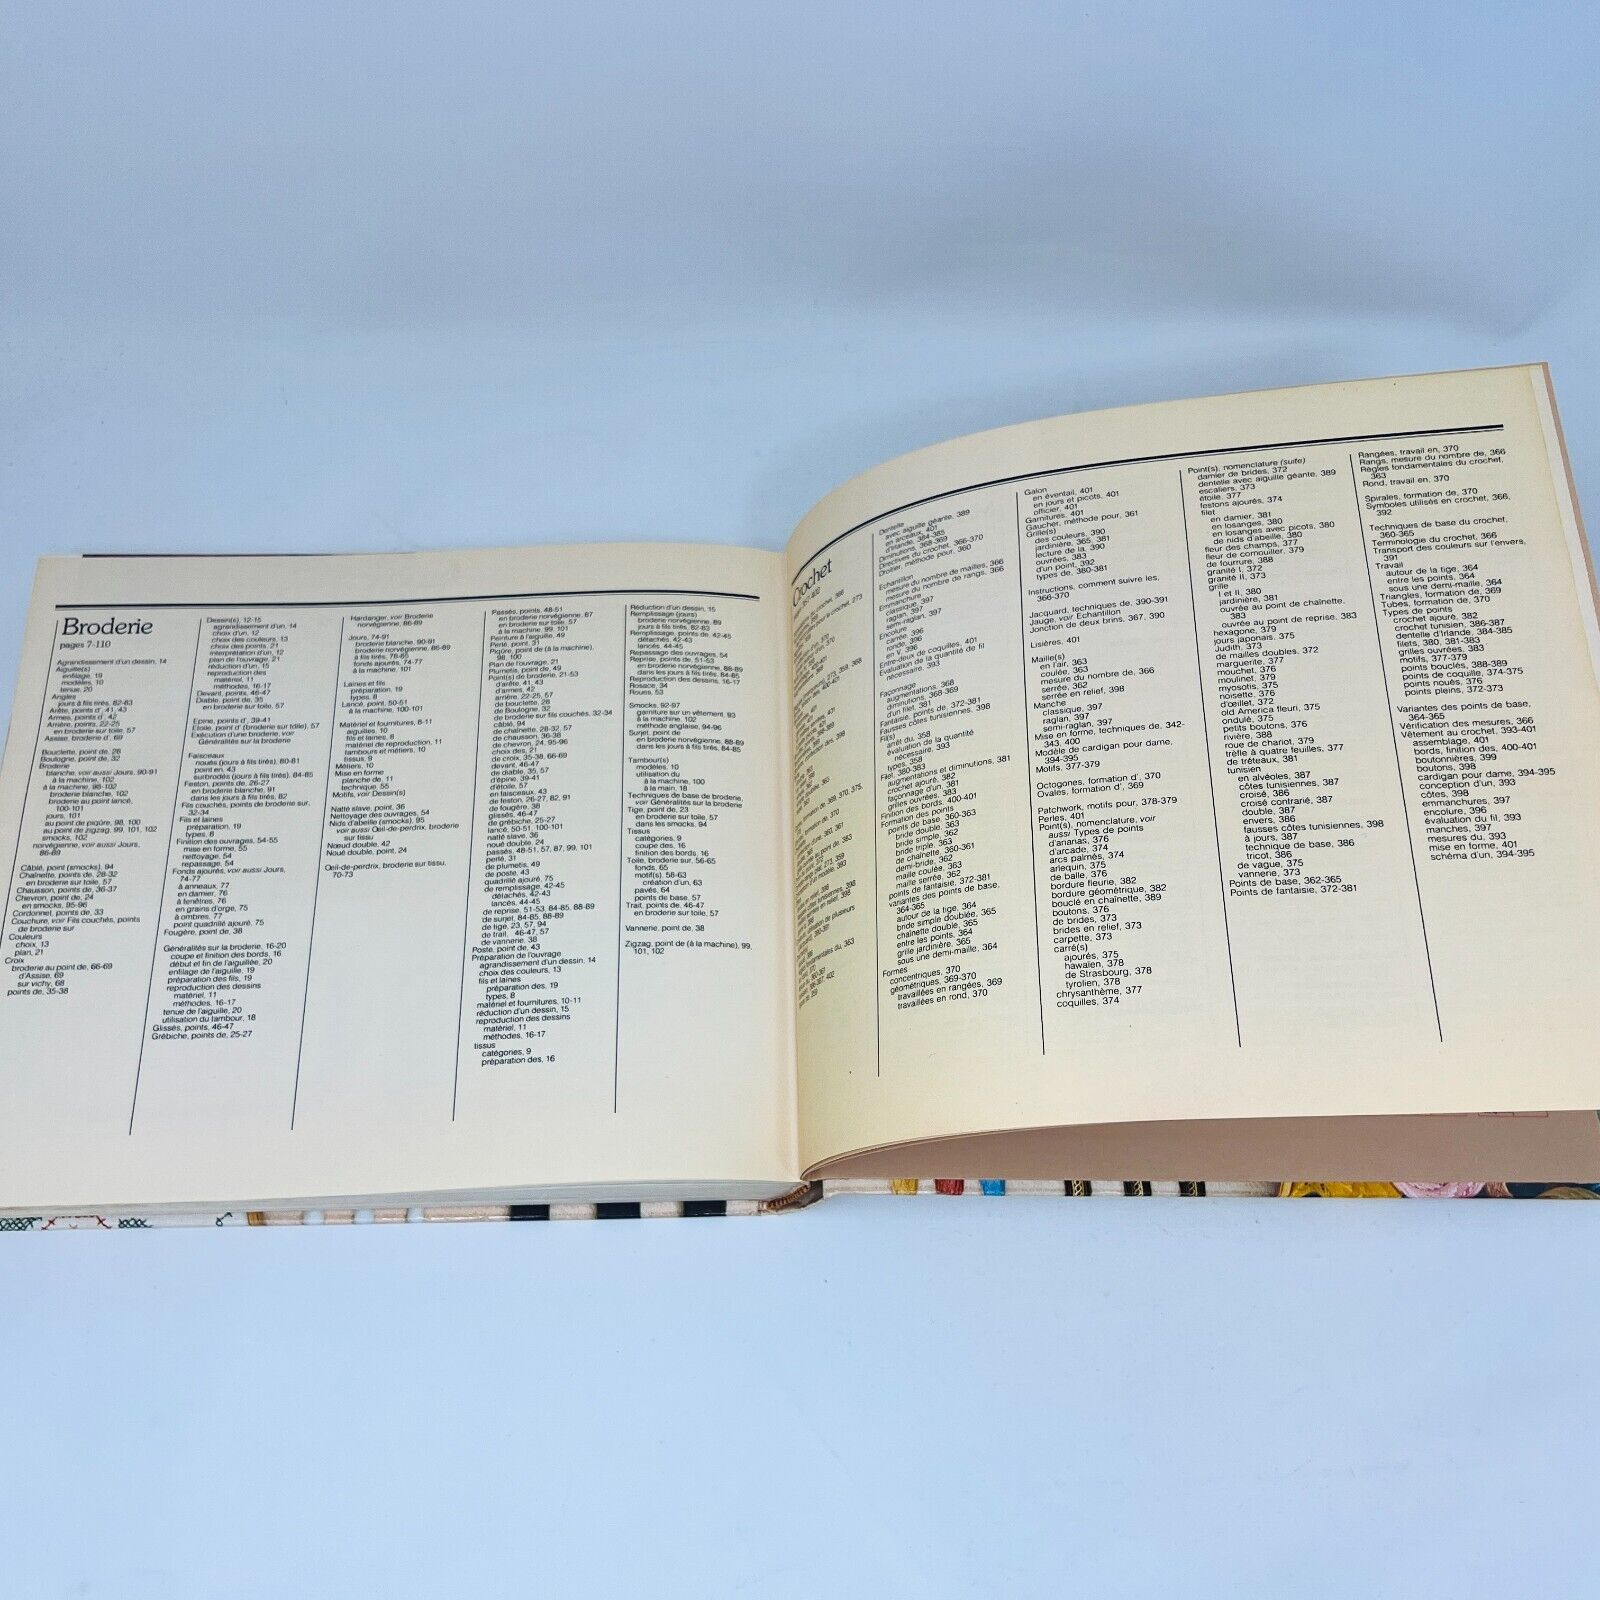 Broderie
pages 7-110
Agrandissement d'un dessin, 14
Aiguille(s)
enfilage, 19
modèles, 10
tenue, 20
Angles
jours à fils tirés, 82-83
Arête, points d', 41, 43
Armes, points d', 42
Arrière, points, 22-25
en broderie sur toile, 57
Assise, broderie d', 69
Bouclette, point de, 28
Boulogne, point de, 32
Broderie
blanche, voir aussi Jours, 90-91
à la machine, 102
à la machine, 98-102
broderie blanche, 102
broderie au point lancé,
100-101
jours, 101
au point de piqûre, 98, 100
au point de zigzag, 99, 101, 102
smocks, 102
norvégienne, voir aussi Jours,
86-89
Câblé, point (smocks), 94
Chaînette, points de, 28-32
en broderie sur toile, 57
Chausson, points de, 36-37
Chevron, point de, 24
en smocks, 95-96
Cordonnet, points de, 33
Couchure, voir Fils couchés, points
de broderie sur
Couleurs
choix, 13
plan, 21
Croix
broderie au point de, 66-69
d'Assise, 69
sur vichy, 68
points de, 35-38
Dessin(s), 12-15
agrandissement d'un, 14
choix d'un, 12
choix des couleurs, 13
choix des points, 21
interprétation d'un, 12
plan de l'ouvrage, 21
réduction d'un, 15
reproduction des
matériel, 11
méthodes, 16-17
Devant, points, 46-47
Diable, point de, 35
en broderie sur toile, 57
Epine, points d', 39-41
Etoile, point d' (broderie sur toile), 57
Exécution d'une broderie, voir
Généralités sur la broderie
Faisceaux
noués (jours à fils tirés), 80-81
point en, 43
surbrodés (jours à fils tirés), 84-85
Feston, points de, 26-27
en broderie blanche, 91
dans les jours à fils tirés, 82
Fils couchés, points de broderie sur,
32-34
Fils et laines
préparation, 19
types, 8
Finition des ouvrages, 54-55
mise en forme, 55
nettoyage, 54
repassage, 54
Fonds ajourés, voir aussi Jours,
74-77
à anneaux, 77
en damier, 76
à fenêtres, 76
en grains d'orge, 75
à ombres, 77
point quadrillé ajouré, 75
Fougère, point de, 38
Généralités sur la broderie, 16-20
coupe et finition des bords, 16
début et fin de l'aiguillée, 20
enfilage de l'aiguille, 19
préparation des fils, 19
reproduction des dessins
matériel, 11
méthodes, 16-17
tenue de l'aiguille, 20
utilisation du tambour, 18
Glissés, points, 46-47
Grébiche, points de, 25-27
Hardanger, voir Broderie
norvégienne, 86-89
Jours, 74-91
broderie blanche, 90-91
broderie norvégienne, 86-89
à fils tirés, 78-85
fonds ajourés, 74-77
à la machine, 101
Laines et fils
préparation, 19
types, 8
Lancé, point, 50-51
à la machine, 100-101
Matériel et fournitures, 8-11
aiguilles, 10
fils et laines, 8
matériel de reproduction, 11
tambours et métiers, 10
tissus, 9
Métiers, 10
Mise en forme
planche de, 11
technique, 55
Motifs, voir Dessin(s)
Natté slave, point, 36
Nettoyage des ouvrages, 54
Nids d'abeille (smocks), 95
voir aussi Œil-de-perdrix, broderie
sur tissu
Nœud double, 42
Noué double, point, 24
Œil-de-perdrix, broderie sur tissu,
70-73
Passés, points, 48-51
en broderie norvégienne, 87
en broderie sur toile, 57
à la machine, 99, 101
Peinture à l'aiguille, 49
Perlé, point, 31
Piqûre, point de (à la machine),
98, 100
Plan de l'ouvrage, 21
Plumetis, point de, 49
Point(s) de broderie, 21-53
d'arête, 41, 43
d'armes, 42
arrière, 22-25, 57
de bouclette, 28
de Boulogne, 32
de broderie sur fils couchés, 32-34
câblé, 94
de chaînette, 28-32, 57
de chausson, 36-38
de chevron, 24, 95-96
choix des, 21
de croix, 35-38, 66-69
devant, 46-47
de diable, 35, 57
d'épine, 39-41
d'étoile, 57
en faisceaux, 43
de feston, 26-27, 82, 91
de fougère, 38
glissés, 46-47
de grébiche, 25-27
lancé, 50-51, 100-101
natté slave, 36
noué double, 24
passés, 48-51, 57, 87, 99, 101
perlé, 31
de plumetis, 49
de poste, 43
quadrillé ajouré, 75
de remplissage, 42-45
détachés, 42-43
lancés, 44-45
de reprise, 51-53, 84-85, 88-89
de surjet, 84-85, 88-89
de tige, 23, 57, 94
de trait, 46-47, 57
de vannerie, 38
Poste, point de, 43
Préparation de l'ouvrage
agrandissement d'un dessin, 14
choix des couleurs, 13
fils et laines
préparation des, 19
types, 8
matériel et fournitures, 10-11
réduction d'un dessin, 15
reproduction des dessins
matériel, 11
méthodes, 16-17
tissus
catégories, 9
préparation des, 16
Réduction d'un dessin, 15
Remplissage (jours)
broderie norvégienne, 89
jours à fils tirés, 82-83
Remplissage, points de, 42-45
détachés, 42-43
lancés, 44-45
Repassage des ouvrages, 54
Reprise, points de, 51-53
en broderie norvégienne, 88-89
dans les jours à fils tirés, 84-85
Reproduction des dessins, 16-17
Rosace, 34
Roues, 53
Smocks, 92-97
garniture sur un vêtement, 93
à la machine, 102
méthode anglaise, 94-96
Surjet, point de
en broderie norvégienne, 88-89
dans les jours à fils tirés, 84-85
Tambour(s)
modèles, 10
utilisation du
à la machine, 100
à la main, 18
Techniques de base de broderie,
voir Généralités sur la broderie
Tige, point de, 23
en broderie sur toile, 57
dans les smocks, 94
Tissus
catégories, 9
coupe des, 16
finition des bords, 16
Toile, broderie sur, 56-65
fonds, 65
motif(s), 58-63
création d'un, 63
pavés, 64
points de base, 57
Trait, points de, 46-47
en broderie sur toile, 57
Vannerie, point de, 38
Zigzag, point de (à la machine), 99,
101, 102
Crochet
Dentelle
avec aiguille géante, 389
en arceaux, 401
d'Irlande, 384-385
Diminutions, 368-369
Directives du crochet, 366-370
Droitier, méthode pour, 360
Echantillon
mesure du nombre de mailles, 366
mesure du nombre de rangs, 366
Emmanchure
classique, 397
raglan, 397
semi-raglan, 397
Encolure
carrée, 396
ronde, 396
en V, 396
Entre-deux de coquilles, 401
Evaluation de la quantité de fil
nécessaire, 393
Façonnage
augmentations, 368
diminutions, 368-369
d'un filet, 381
Fantaisie, points de, 372-381
Fausses côtes tunisiennes, 398
Fil(s)
arrêt du, 358
évaluation de la quantité
nécessaire, 393
types, 358
Filet, 380-383
augmentations et diminutions, 381
crochet ajouré, 382
façonnage d'un, 381
grilles ouvrées, 383
Finition des bords, 400-401
Formation des points
points de base, 360-363
bride double, 363
bride simple, 362
bride triple, 363
de chaînette, 360-361
demi-bride, 362
maille coulée, 363
maille serrée, 362
points de fantaisie, 372-381
variantes des points de base,
364-365
autour de la tige, 364
bride simple doublée, 365
chaînette double, 365
entre les points, 364
grille jardinière, 365
sous une demi-maille, 364
Formes
concentriques, 370
géométriques, 369-370
travaillées en rangées, 369
travaillées en rond, 370
Galon
en éventail, 401
en jours et picots, 401
officier, 401
Garnitures, 401
Gaucher, méthode pour, 361
Grille(s)
des couleurs, 390
jardinière, 365, 381
lecture de la, 390
ouvrées, 383
d'un point, 392
types de, 380-381
Instructions, comment suivre les,
366-370
Jacquard, techniques de, 390-391
Jauge, voir Echantillon
Jonction de deux brins, 367, 390
Lisières, 401
Maille(s)
en l'air, 363
coulée, 363
mesure du nombre de, 366
serrée, 362
serrée en relief, 398
Manche
classique, 397
raglan, 397
semi-raglan, 397
Mise en forme, techniques de, 342-
343, 400
Modèle de cardigan pour dame,
394-395
Motifs, 377-379
Octogones, formation d', 370
Ovales, formation d', 369
Patchwork, motifs pour, 378-379
Perles, 401
Point(s), nomenclature, voir
aussi Types de points
d'ananas, 376
d'arcade, 374
arcs palmés, 374
arlequin, 375
de balle, 376
bordure fleurie, 382
bordure géométrique, 382
bouclé en chaînette, 389
boutons, 376
de brides, 373
brides en relief, 373
carpette, 373
carré(s)
ajourés, 375
hawaïen, 378
de Strasbourg, 378
tyrolien, 378
chrysanthème, 377
coquilles, 374
Point(s), nomenclature (suite)
damier de brides, 372
dentelle avec aiguille géante, 389
escaliers, 373
étoile, 377
festons ajourés, 374
filet
en damier, 381
en losanges, 380
en losanges avec picots, 380
de nids d'abeille, 380
fleur des champs, 377
fleur de cornouiller, 379
de fourrure, 388
granité I, 372
granité II, 373
grille
I et II, 380
jardinière, 381
ouvrée au point de chaînette,
383
ouvrée au point de reprise, 383
hexagone, 379
jours japonais, 375
Judith, 373
de mailles doubles, 372
marguerite, 377
mouchet, 376
moulinet, 379
myosotis, 375
noisette, 376
d'œillet, 372
old America fleuri, 375
ondulé, 375
petits boutons, 376
rivière, 388
roue de chariot, 379
trèfle à quatre feuilles, 377
de tréteaux, 381
tunisien
en alvéoles, 387
côtes tunisiennes, 387
croisé, 386
croisé contrarié, 387
double, 387
envers, 386
fausses côtes tunisiennes, 398
à jours, 387
technique de base, 386
tricot, 386
de vague, 375
vannerie, 373
Points de base, 362-365
Points de fantaisie, 372-381
Rangées, travail en, 370
Rangs, mesure du nombre de, 366
Règles fondamentales du crochet,
363
Rond, travail en, 370
Spirales, formation de, 370
Symboles utilisés en crochet, 366,
392
Techniques de base du crochet,
360-365
Terminologie du crochet, 366
Transport des couleurs sur l'envers,
391
Travail
autour de la tige, 364
entre les points, 364
sous une demi-maille, 364
Triangles, formation de, 369
Tubes, formation de, 370
Types de points
crochet ajouré, 382
crochet tunisien, 386-387
dentelle d'Irlande, 384-385
filets, 380, 381-383
grilles ouvrées, 383
motifs, 377-379
points bouclés, 388-389
points de coquille, 374-375
points noués, 376
points pleins, 372-373
Variantes des points de base,
364-365
Vérification des mesures, 366
Vêtement au crochet, 393-401
assemblage, 401
bords, finition des, 400-401
boutonnières, 399
boutons, 398
cardigan pour dame, 394-395
conception d'un, 393
côtes, 398
emmanchures, 397
encolure, 396
évaluation du fil, 393
manches, 397
mesures du, 393
mise en forme, 401
schéma d'un, 394-395